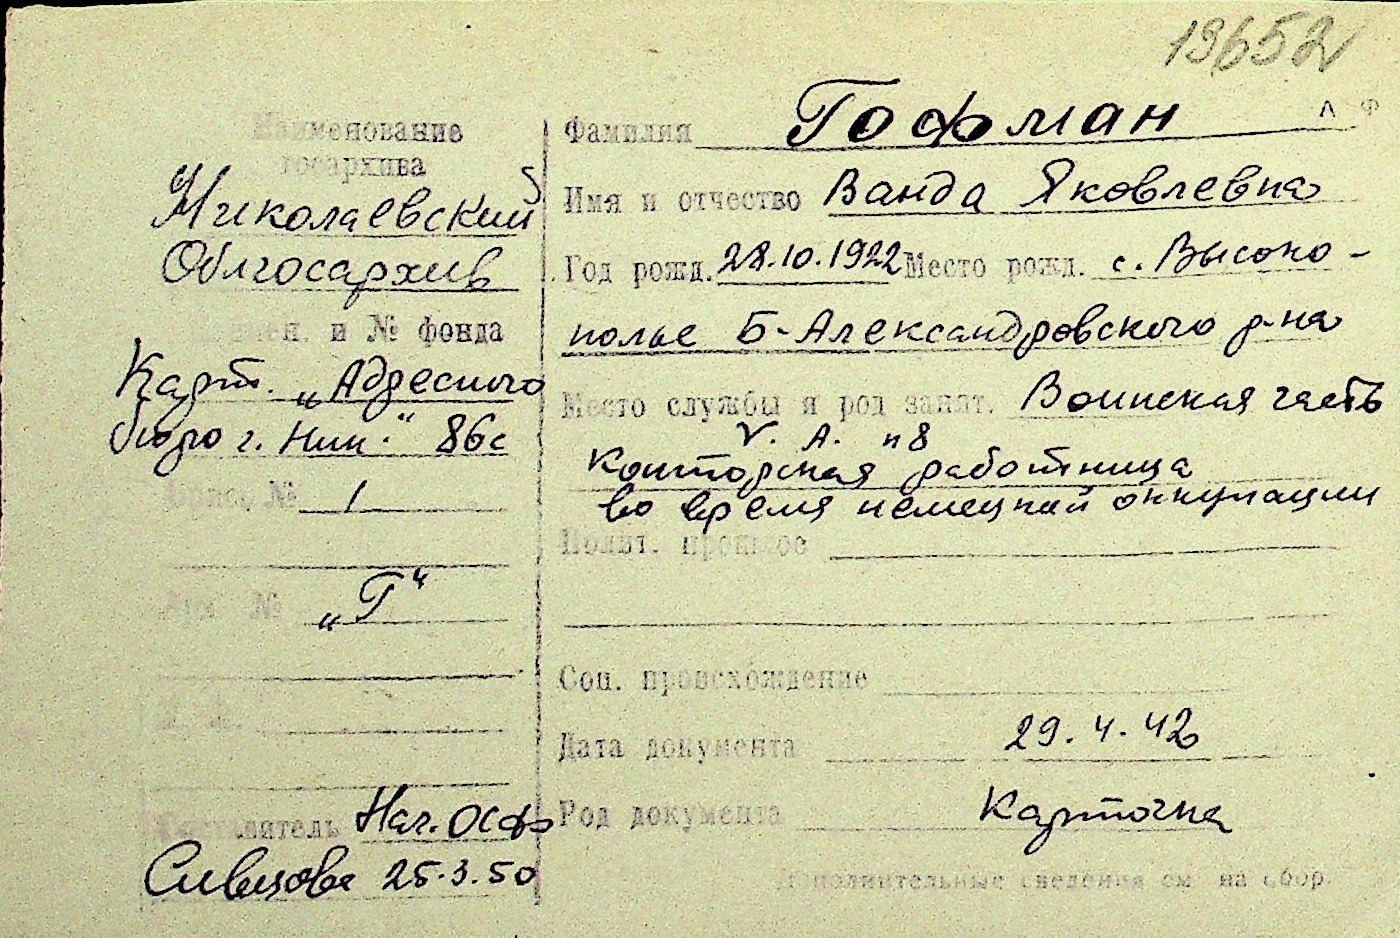 19652
Наименование
госархива
Николаевский
Облгосархив
и № фонда
Карт. „Адресного
бюро г. Ник." 86с
Опись № 1
„Г"
Составитель Нач. ОСФ
25.3.50
Фамилия Гофман
Л Ф
Имя и отчество Ванда Яковлевна
Год рожд. 28.10.1922 Место рожд. с. Высоко-
полье Б-Александровского р-на
Место службы и род занят. Воинская часть
V. A. n8
конторская работница
во время немецкой оккупации
Полит. прошлое
Соц. происхождение
Дата документа 29.4.42
Род документа Карточка
Дополнительные сведения см на обор.